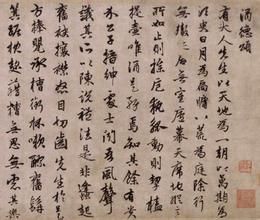 酒德頌
有大人先生以天地為一朝以萬期為
須臾日月為扃牖八荒為庭除行
無轍跡居無室廬幕天席地縱意
所如止則操卮執觚動則挈榼
提壺唯酒是務焉知其餘有貴
介公子搢紳處士聞吾風聲
議其所以陳說禮法是非鋒起
奮袂攘襟怒目切齒先生於是
方捧罌承槽銜杯漱醪奮髯
箕踞枕麴藉糟無思無慮其樂